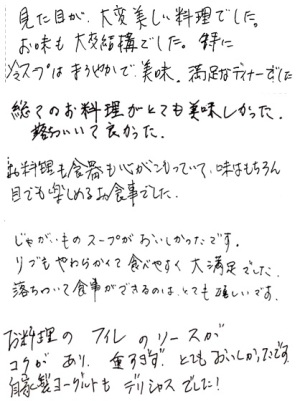 見た目が、大変美しい料理でした。
お味も大変結構でした。特に
冷スープはまろやかで、美味。満足なディナーでした
総てのお料理がとても美味しかった。
落ちついて良かった。
お料理も食器も心がこもっていて、味はもちろん
目でも楽しめるお食事でした。
じゃがいものスープがおいしかったです。
リブもやわらかくて食べやすく大満足でした。
落ちついて食事ができるのは、とても嬉しいです。
お料理の フィレ のソースが
コクが あり、重すぎず、とてもおいしかったです
自家製ヨーグルトも デリシャスでした！